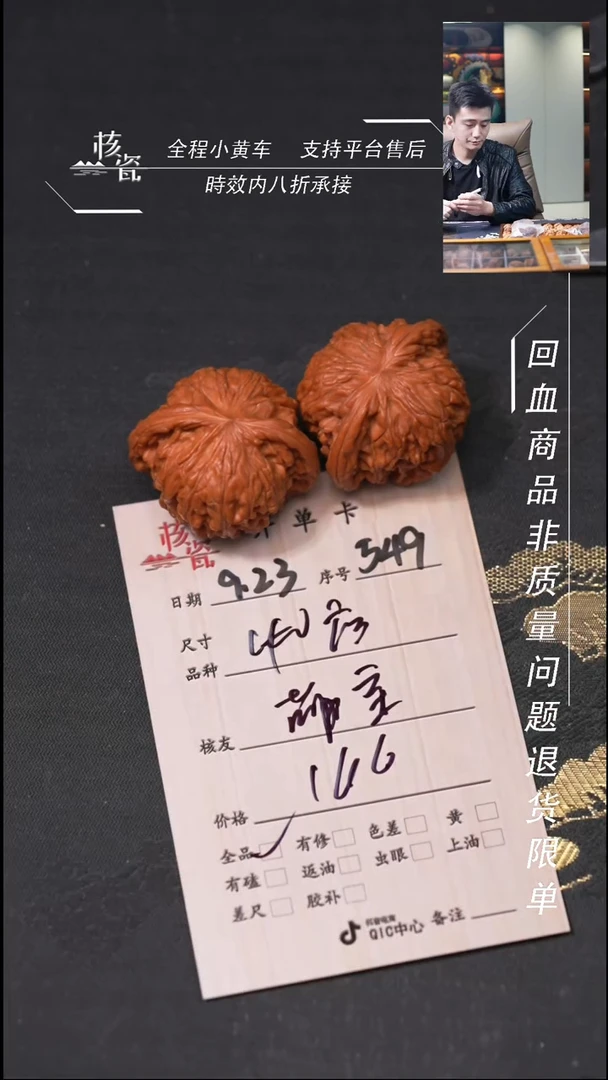 核瓷
全程小黄车 支持平台售后
時效内八折承接
回血商品非质量问题退货限单
核瓷
单卡
日期 9.23 序号 549
尺寸
品种
核友
价格 166
全品 有修 色差 黄
有磕 返油 虫眼 上油
差尺 胶补
抖音电商
QIC中心 备注